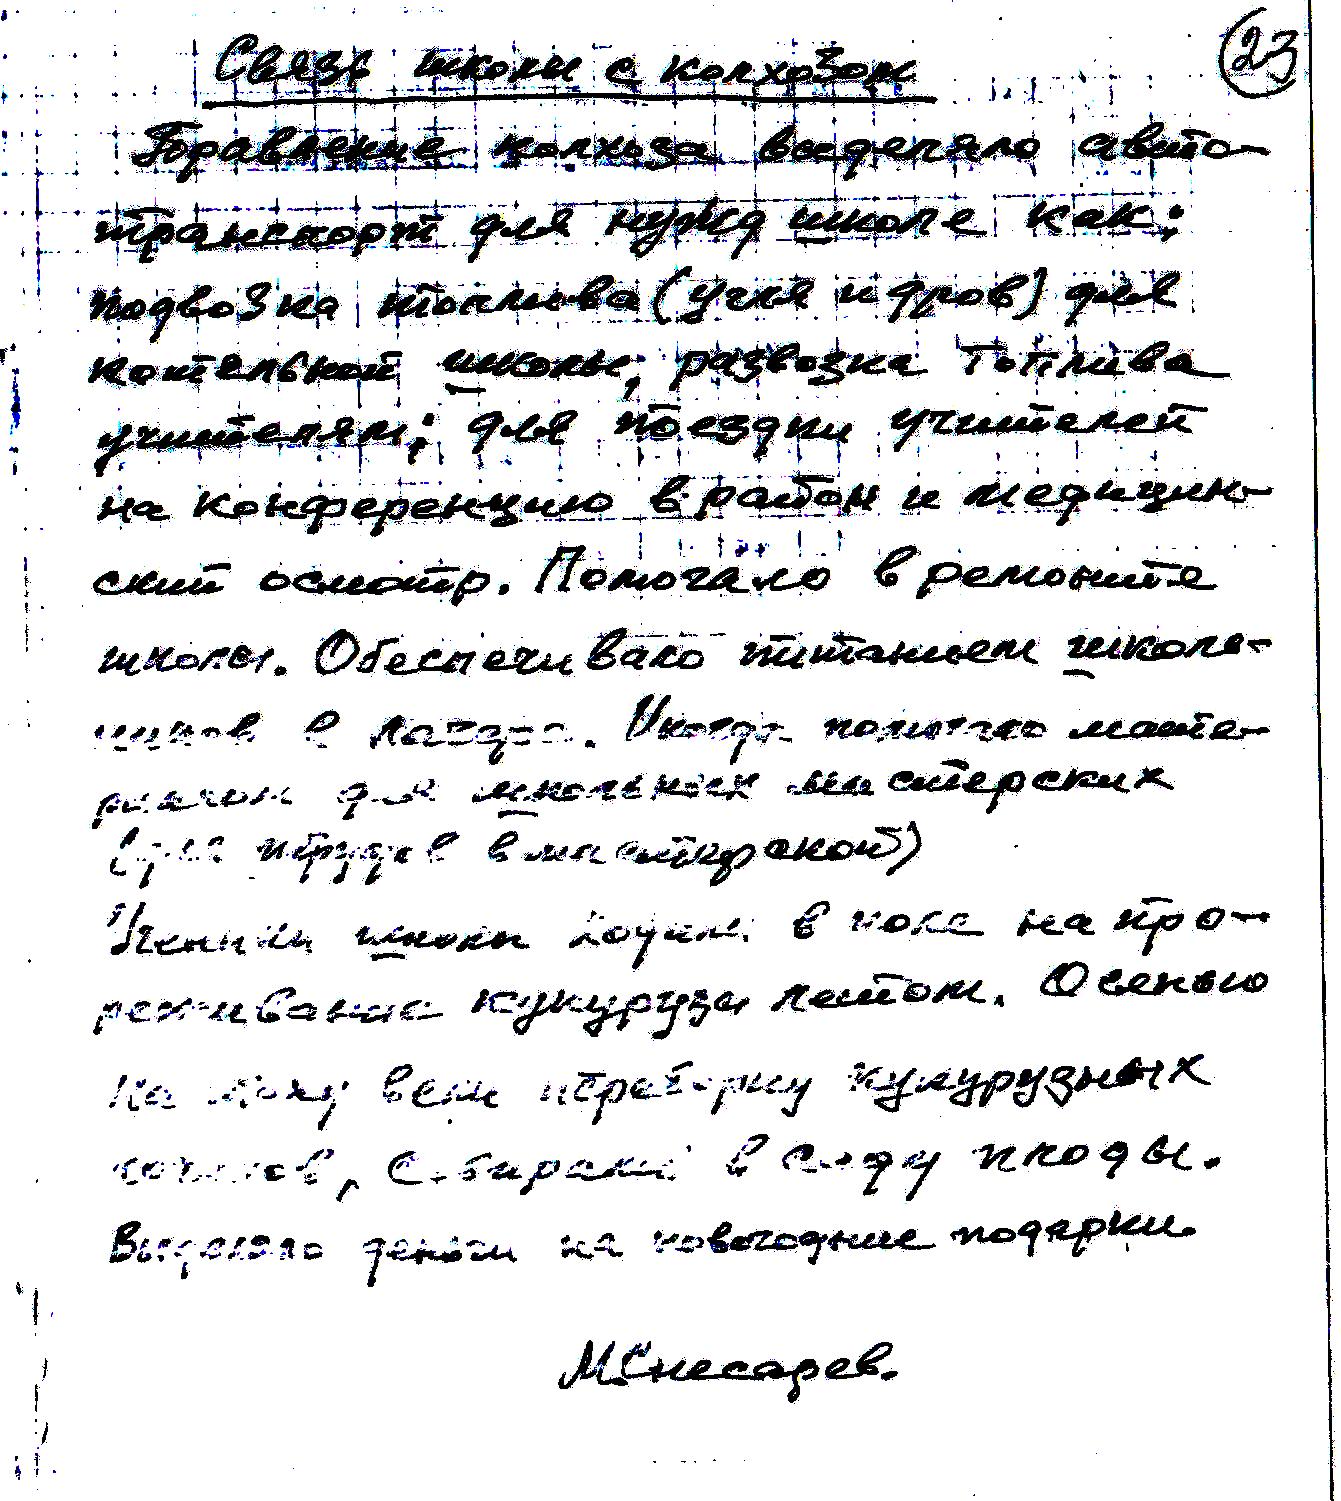 23
Связь школы с колхозом
Правление колхоза выделяло авто-
транспорт для нужд школе как:
подвозка топлива (угля и дров) для
котельной школы; развозка топлива
учителям; для поездки учителей
на конференцию в район и медицин-
ский осмотр. Помогало в ремонте
школы. Обеспечивало питанием школь-
ников в лагере. Иногда помогало мате-
риалом для школьных мастерских
(для трудов в мастерской)
Ученики школы ходили в поле на про-
реживание кукурузы летом. Осенью
на току вели переборку кукурузных
початков, собирали в саду плоды.
Выделяло деньги на новогодние подарки.
М.Снесарев.